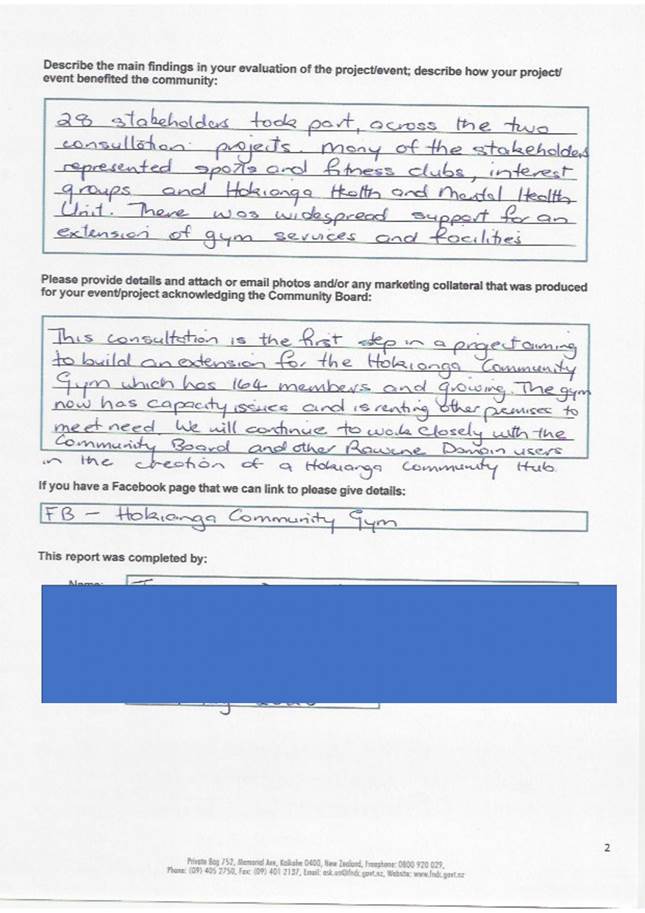 Describe the main findings in your evaluation of the project/event; describe how your project/
event benefited the community:
28 stakeholders took part, across the two
consultation projects. Many of the stakeholders
represented sports and fitness clubs, interest
groups and Hokianga Health and Mental Health
Unit. There was widespread support for an
extension of gym services and facilities
Please provide details and attach or email photos and/or any marketing collateral that was produced
for your event/project acknowledging the Community Board:
This consultation is the first step in a project aiming
to build an extension for the Hokianga Community
Gym which has 164 members and growing. The gym
now has capacity issues and is renting other premises to
meet need. We will continue to work closely with the
Community Board and other Rawene Domain users
in the creation of a Hokianga Community Hub
If you have a Facebook page that we can link to please give details:
FB - Hokianga Community Gym
This report was completed by:
2
Private Bag 752, Memorial Ave, Kaikohe 0400, New Zealand, Freephone: 0800 920 029,
Phone: (09) 405 2750, Fax: (09) 401 2137, Email: ask.us@fndc.govt.nz, Website: www.fndc.govt.nz